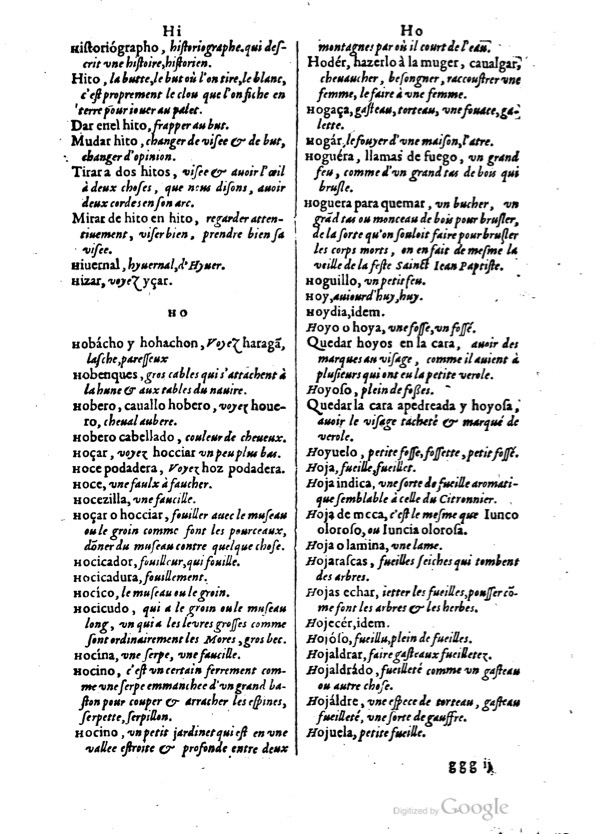 Hi
Historiógrapho, historiographe, qui des-
crit vne histoire, historien.
Hito, la butte, le but où l'on tire, le blanc,
c'est proprement le clou que l'on fiche en
terre pour iouer au palet.
Dar en el hito, frapper au but.
Mudar hito, changer de visee & de but,
changer d'opinion.
Tirar a dos hitos, visee & auoir l'œil
à deux choses, que nous disons, auoir
deux cordes en son arc.
Mirar de hito en hito, regarder atten-
tiuement, viser bien, prendre bien sa
visee.
Hiuernal, hyuernal, d'Hyuer.
Hizar, voyez yçar.
HO
Hobácho y hohachon, Voyez haragã,
lasche, paresseux
Hobenques, gros cables qui s'attachent à
la hune & aux tables du nauire.
Hobero, cauallo hobero, voyez houe-
ro, cheual aubere.
Hobero cabellado, couleur de cheueux.
Hoçar, voyez hocciar vn peu plus bas.
Hoce podadera, Voyez hoz podadera.
Hoce, vne faulx à faucher.
Hocezilla, vne faucille.
Hoçar o hocciar, fouiller auec le museau
ou le groin comme font les pourceaux,
dõner du museau contre quelque chose.
Hocicador, fouilleur, qui fouille.
Hocicadura, fouillement.
Hocíco, le museau ou le groin.
Hocicudo, qui a le groin ou le museau
long, vn qui a les levres grosses comme
sont ordinairement les Mores, gros bec.
Hocina, vne serpe, vne faucille.
Hocino, c'est vn certain ferrement com-
me vne serpe emmanchee d'vn grand ba-
ston pour couper & arracher les espines,
serpette, serpillon.
Hocino, vn petit jardinet qui est en vne
vallee estroite & profonde entre deux
Ho
montagnes par où il court de l'eau.
Hodér, hazerlo à la muger, caualgar,
cheuaucher, besongner, raccoustrer vne
femme, le faire à vne femme.
Hogaça, gasteau, torteau, vne fouace, ga-
lette.
Hogár, le fouyer d'vne maison, l'atre.
Hoguéra, llamas de fuego, vn grand
feu, comme d'vn grand tas de bois qui
brusle.
Hoguera para quemar, vn bucher, vn
grãd tas ou monceau de bois pour brusler,
de la sorte qu'on souloit faire pour brusler
les corps morts, on en fait de mesme la
veille de la feste Sainct Iean Baptiste.
Hoguillo, vn petit feu.
Hoy, auiourd'huy, huy.
Hoydia, idem.
Hoyo o hoya, vne fosse, vn fossé.
Quedar hoyos en la cara, auoir des
marques au visage, comme il auient à
plusieurs qui ont eu la petite verole.
Hoyoso, plein de fosses.
Quedar la cara apedreada y hoyosa,
auoir le visage tacheté & marqué de
verole.
Hoyuelo, petite fosse, fossette, petit fossé.
Hoja, fueille, fueillet.
Hoja indica, vne sorte de fueille aromati-
que semblable à celle du Citronnier.
Hoja de meca, c'est le mesme que Iunco
oloroso, ou Iuncia olorosa.
Hoja o lamina, vne lame.
Hojarascas, fueilles seiches qui tombent
des arbres.
Hojas echar, ietter les fueilles, pousser cõ-
me font les arbres & les herbes.
Hojecér, idem.
Hojóso, fueillu, plein de fueilles.
Hojaldrar, faire gasteaux fueilletez.
Hojaldrádo, fueilleté comme vn gasteau
ou autre chose.
Hojáldre, vne espece de torteau, gasteau
fueilleté, vne sorte de gauffre.
Hojuela, petite fueille.
ggg ij
Digitized by Google